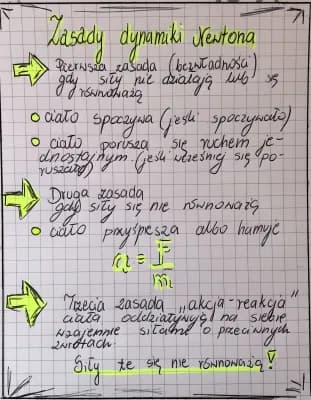 Zasady dynamiki Newtona
Pierwsza zasada (bezwładności)
gdy siły nie działają lub się
równoważą
ciało spoczywa (jeśli spoczywało)
ciało porusza się ruchem je-
dnostajnym (jeśli wcześniej się po-
ruszało)
Druga zasada
gdy siły się nie równoważą
ciało przyśpiesza albo hamuje
a = F
m
Trzecia zasada "akcja-reakcja"
ciała oddziaływują na siebie
wzajemnie siłami o przeciwnych
zwrotach.
Siły te się nie równoważą!